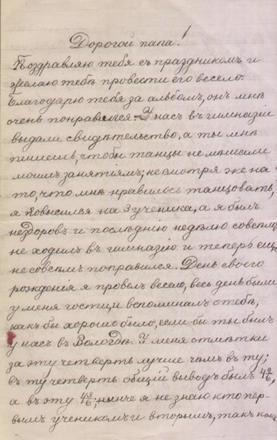 Дорогой папа!
Поздравляю тебя съ праздникомъ и
желаю тебѣ провести его весело.
Благодарю тебя за альбомъ, онъ мнѣ
очень понравился. У насъ въ гимназіи
выдали свидѣтельство, а ты мнѣ
пишешь, чтобы танцы не мѣшали
моимъ занятіямъ, несмотря же на
то, что мнѣ нравилось танцовать,
я повысился на 3 ученика, а я былъ
нездоровъ и послѣднюю недѣлю совсѣмъ
не ходилъ въ гимназію и теперь еще
не совсѣмъ поправился. День своего
рожденія я провелъ весело, весь день были
у меня гости, и вспоминалъ о тебѣ,
какъ бы хорошо было, если бы ты былъ
у насъ въ Вологдѣ. У меня отмѣтки
за эту четверть лучше чѣмъ въ ту;
въ ту четверть общій выводъ былъ
а въ эту нынче я не знаю кто пер-
вымъ ученикомъ и вторымъ, такъ как